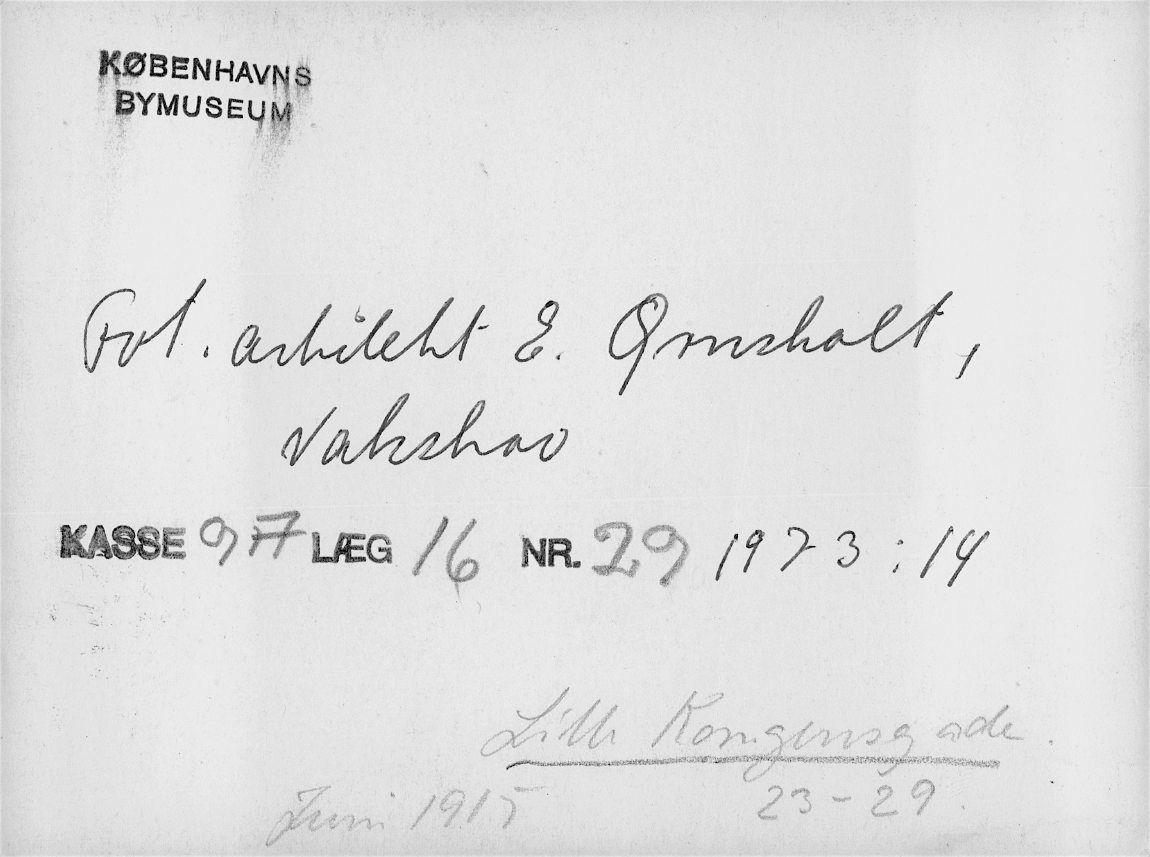 KØBENHAVNS
BYMUSEUM
Fot. arkitekt E. Ørnsholt,
Vakskab
KASSE 97 LÆG 16 NR. 29 1973:14
Lille Kongensgade.
23-29.
Juni 1915